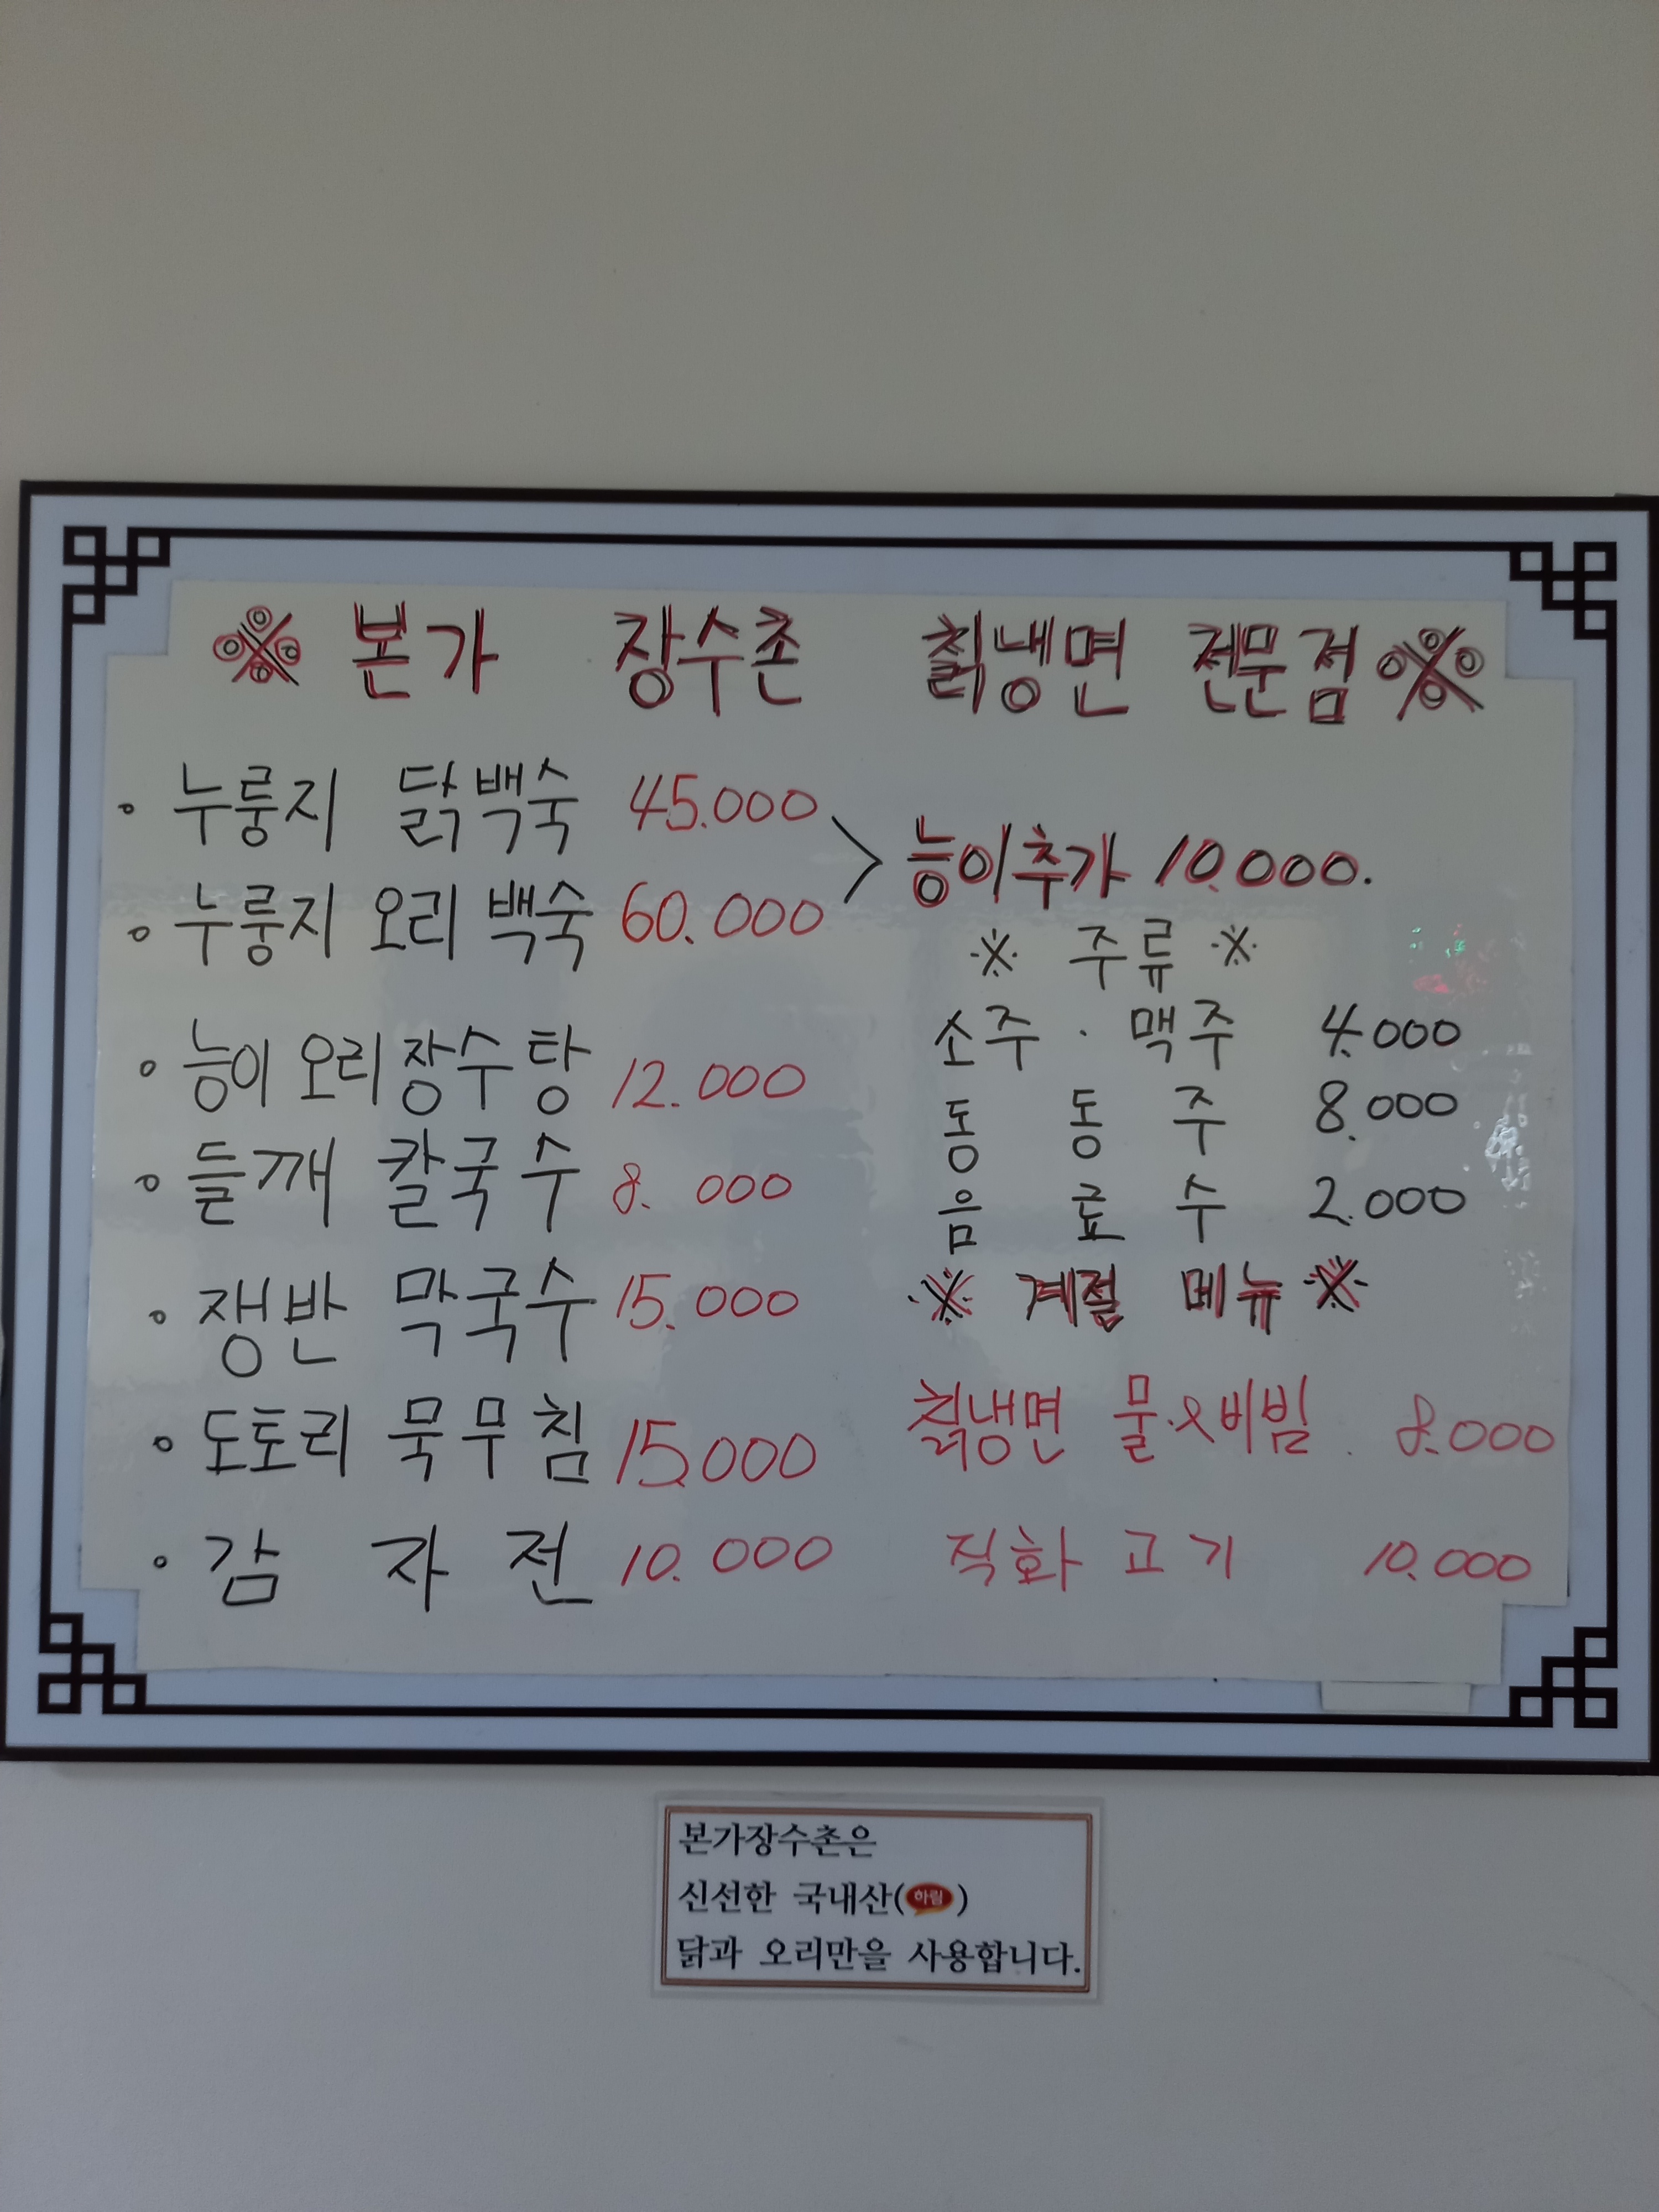 ※ 본가 장수촌 칡냉면 전문점 ※
◦ 누룽지 닭백숙 45.000
◦ 누룽지 오리 백숙 60.000
> 능이추가 10.000.
◦ 능이 오리 장수탕 12.000
◦ 들깨 칼국수 8.000
◦ 쟁반 막국수 15.000
◦ 도토리 묵무침 15.000
◦ 감 자 전 10.000
※ 주류 ※
소주 · 맥주 4.000
동 동 주 8.000
음 료 수 2.000
※ 계절 메뉴 ※
칡냉면 물.&비빔. 8.000
직화 고기 10.000
본가장수촌은
신선한 국내산(하림)
닭과 오리만을 사용합니다.